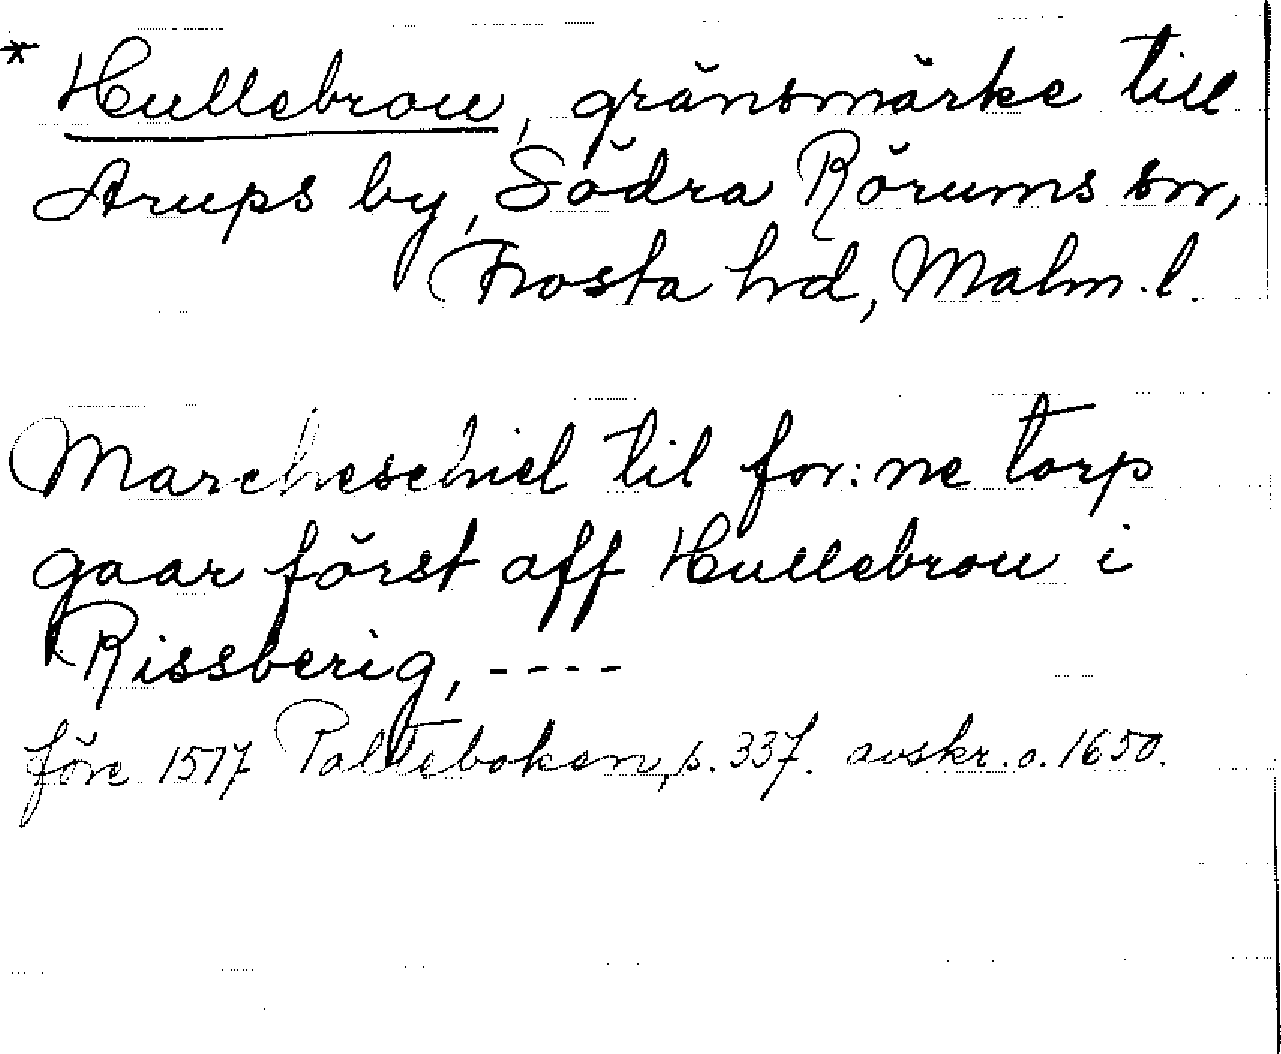 * Hullebrou, gränsmärke till
Arups by, Södra Rörums sn,
Frosta hd, Malm. l.
Marcheschiel til for:ne torp
gaar först aff Hullebrou i
Rissberig, ----
före 1577 Palteboken, s. 337. avskr. o. 1650.